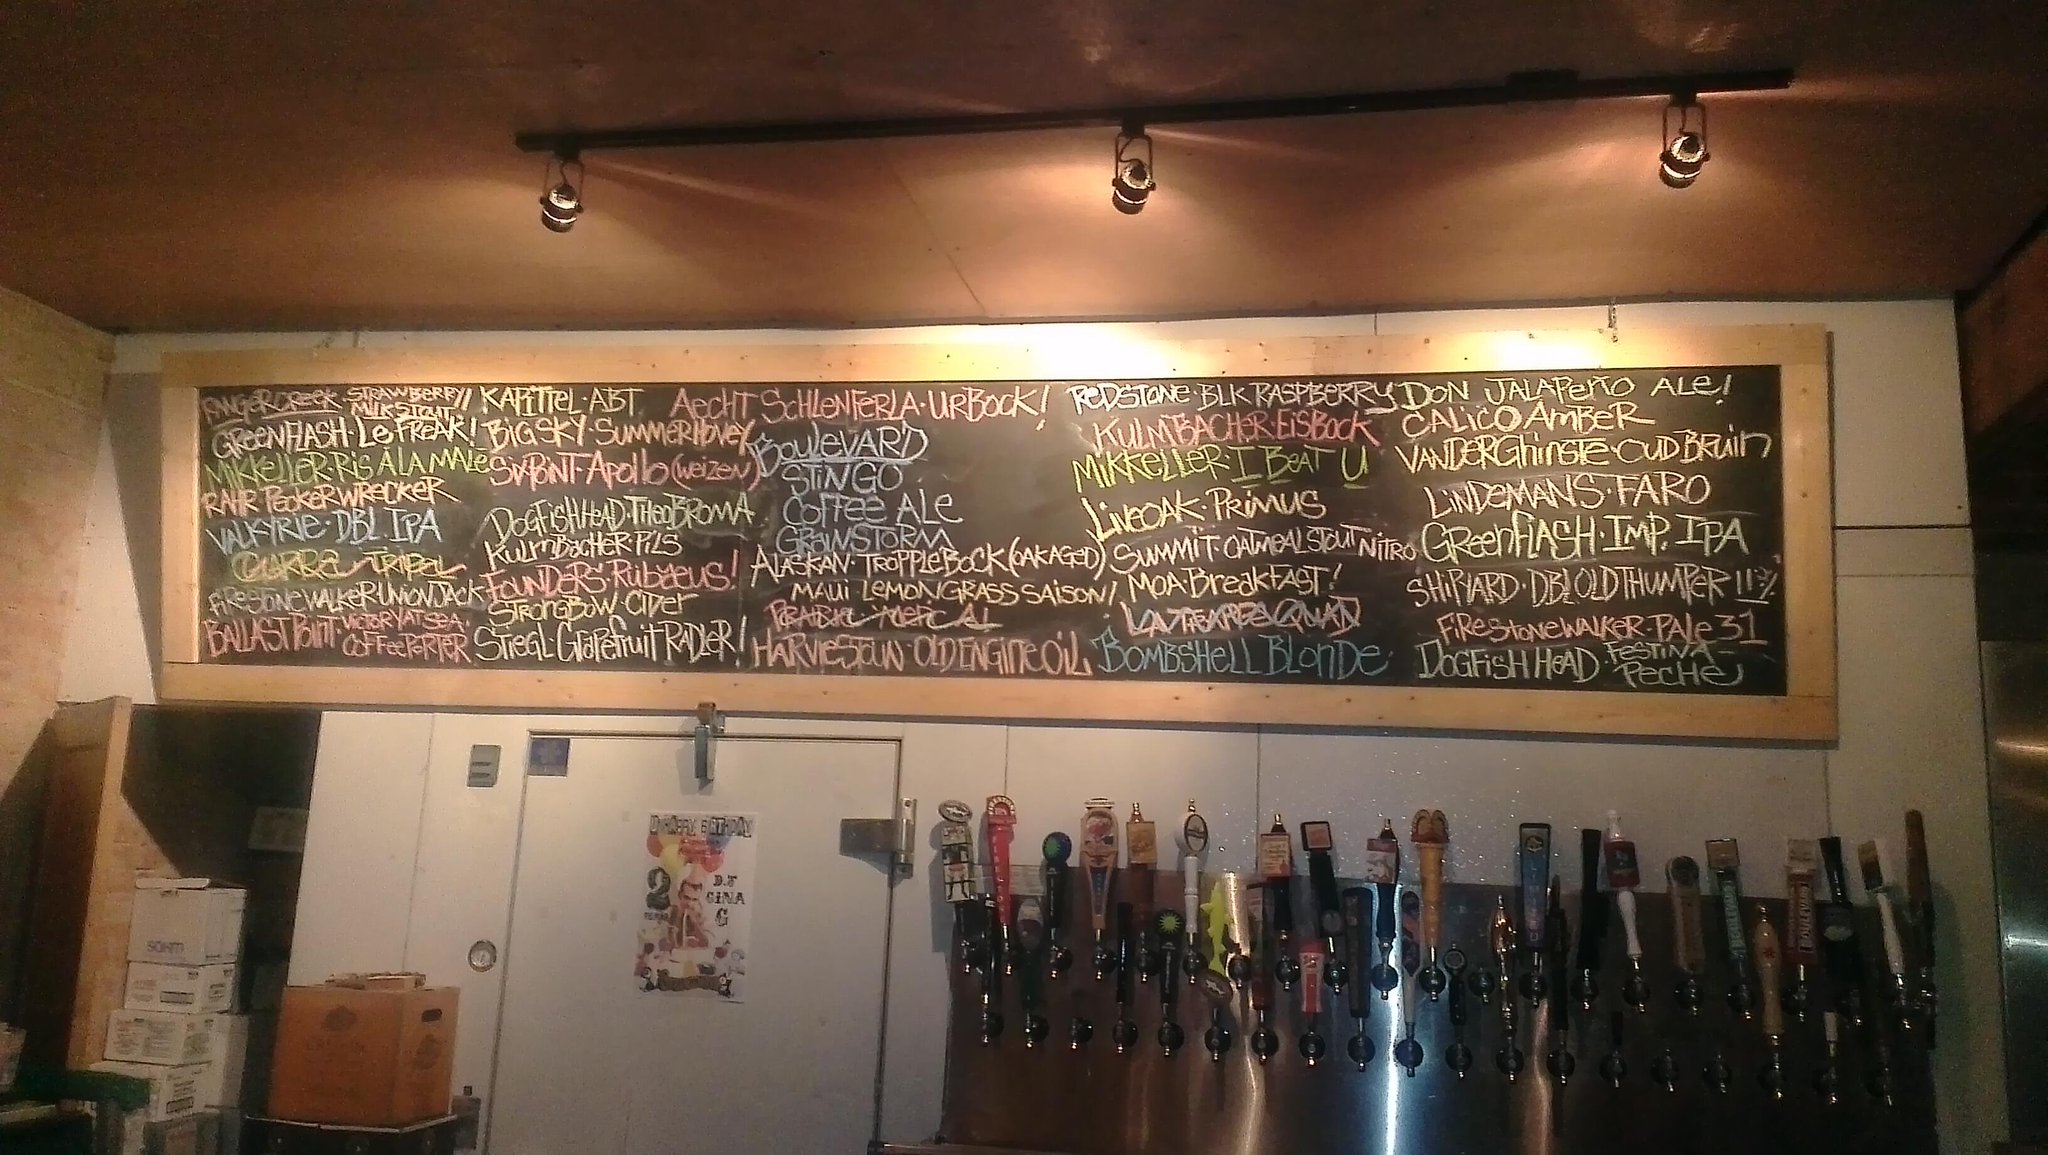 RANGERCREEK · STRAWBERRY/
MILKSTOUT
GREENFLASH · LE FREAK!
MIKKELLER · RIS ALAMALE
RAHR PECKERWRECKER
VALKYRIE · DBL IPA
TRIPEL
FIRESTONE WALKER UNION JACK
BALLAST POINT · VICTORY AT SEA ·
COFFEE PORTER
KAPITTEL · ABT
BIGSKY · SUMMERHONEY
SIXPOINT · APOLLO (WEIZEN)
DOGFISHHEAD · THEOBROMA
KULMBACHER PILS
FOUNDERS · RUBAEUS!
STRONGBOW · CIDER
STIEGL · GRAPEFRUIT RADLER!
AECHT SCHLENFERLA · URBOCK!
BOULEVARD
STINGO
COFFEE ALE
GRAINSTORM
ALASKAN · TROPPLEBOCK (OAKAGED)
MAUI · LEMONGRASS SAISON!
PRAIRIE
HARVIESTOUN · OLD ENGINE OIL
REDSTONE · BLK RASPBERRY
KULMBACHER · EISBOCK
MIKKELLER · I BEAT U
LIVEOAK · PRIMUS
SUMMIT · OATMEAL STOUT NITRO
MOA · BREAKFAST!
LA TRAPPE QUAD
BOMBSHELL BLONDE
DON JALAPEÑO ALE!
CALICO AMBER
VANDERGHINSTE · OUD BRUIN
LINDEMANS · FARO
GREENFLASH · IMP. IPA
SHIPYARD · DBL OLD THUMPER 11.2%
FIRESTONEWALKER · PALE 31
DOGFISH HEAD · FESTINA -
PECHE
HAPPY BIRTHDAY
2
YEARS
DJ
GINA
G
SOHM